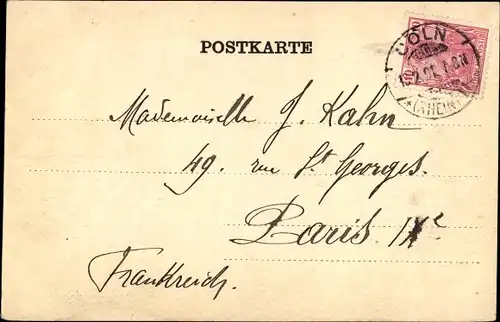 CÖLN
*(RHEIN)
POSTKARTE
Mademoiselle J. Kahn
49. rue St Georges.
Paris. IXe
Frankreich.